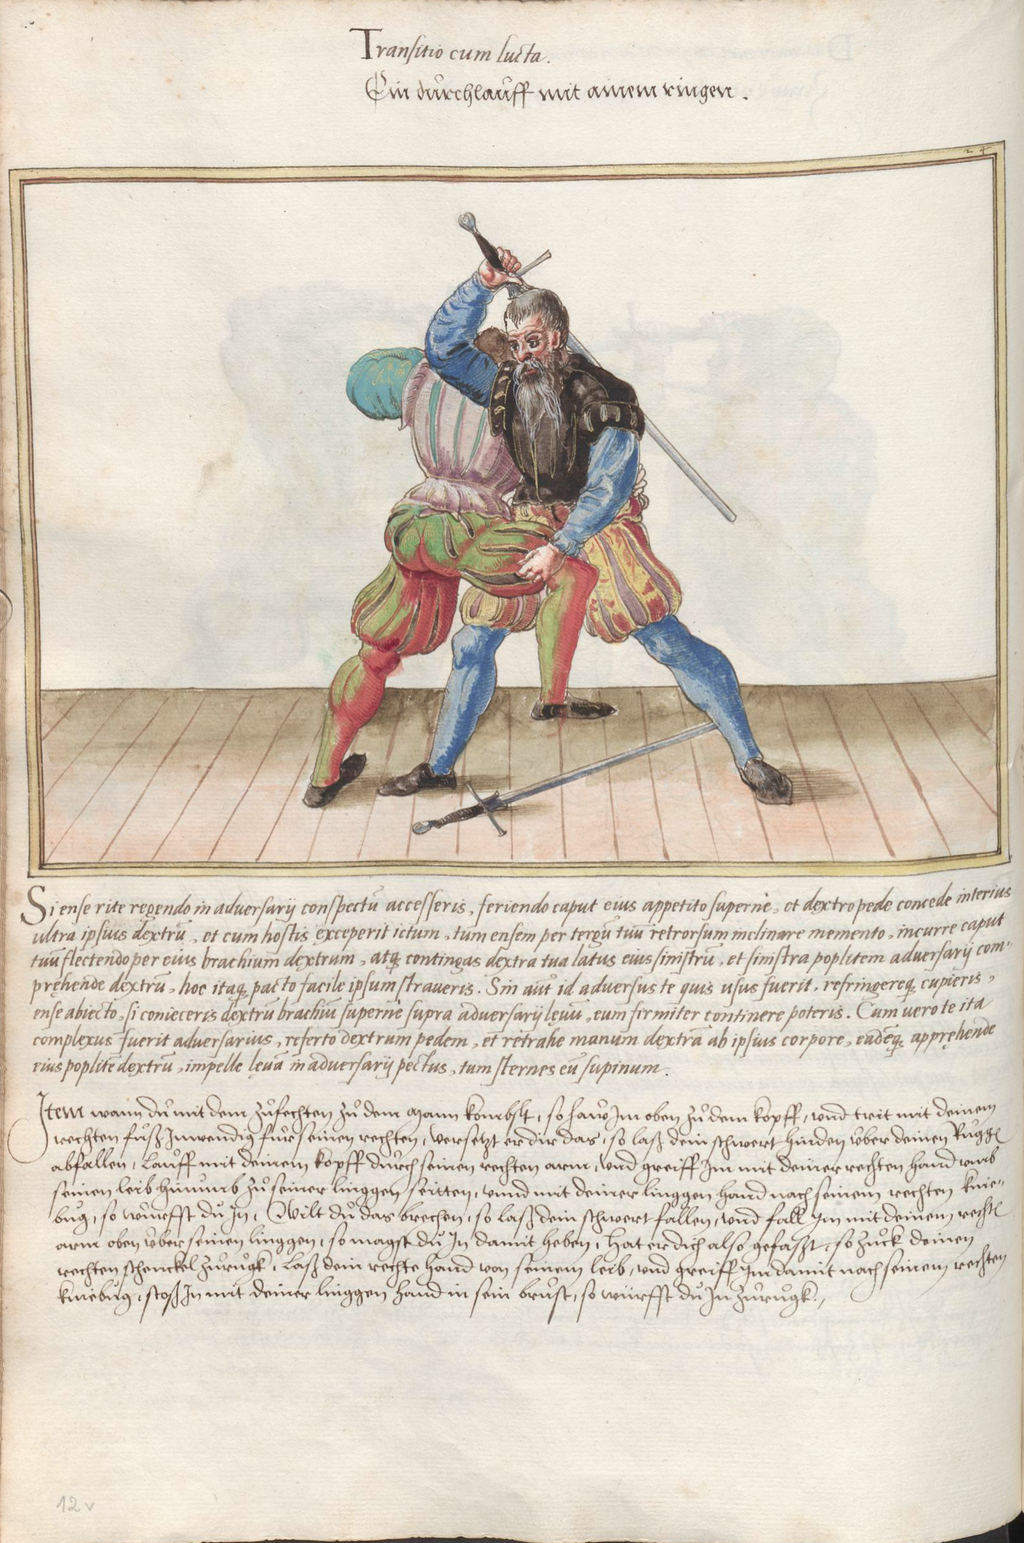 Transitio cum lucta.
Ein durchlauff mit ainem ringen.
24
Si ense rite regendo in adversarij conspectu accesseris, feriendo caput eius appetito superne, et dextro pede concede interius
ultra ipsius dextrū, et cum hostis exceperit ictum, tum ensem per tergū tuū retrorsum inclinare memento, incurre caput
tuū flectendo per eius brachium dextrum, atq; contingas dextra tua latus eius sinistrū, et sinistra poplitem adversarij com-
prehende dextrū, hoc itaq; pacto facile ipsum straveris. Sin aūt id adversus te quis usus fuerit, refringereq; cupieris,
ense abiecto, si conieceris dextrū brachiū superne supra adversarij levū, eum firmiter continere poteris. Cum vero te ita
complexus fuerit adversarius, referto dextrum pedem, et retrahe manum dextrā ab ipsius corpore, eadēq; apprehende
eius poplitē dextrū, impelle levā in adversarij pectus, tum sternes eū supinum.
Item wann du mit dem zufechten zu dem Mann kombst, so haw Im oben zu dem kopff, unnd trit mit deinem
rechten fuß Inwendig für seinen rechten, versetzt er dir das, so laß dein schwert hinden über deinen Rugg
abfallen, lauff mit deinem kopff durch seinen rechten arm, und greiff Im mit deiner rechten hand umb
seinen leib hinumb zu seiner linggen seitten, unnd mit deiner linggen hand nach seinem rechten knie-
bug, so würffst du In, Wilt du das brechen, so laß dein schwert fallen, und fall Im mit deinem recht
arm oben über seinen linggen, so magst du In damit heben, hat er dich also gefaßt, so zuck deinen
rechten schenckel zurugk, laß dein rechte hand von seinem leib, und greiff Im damit nach seinem rechten
kniebug, stoß In mit deiner linggen hand in sein brust, so würffst du In zurugk.
12 v